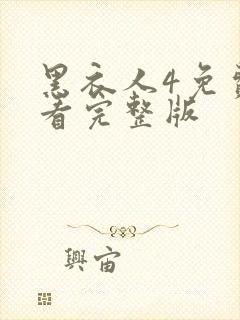 黑衣人4免費
看完整版
興宙